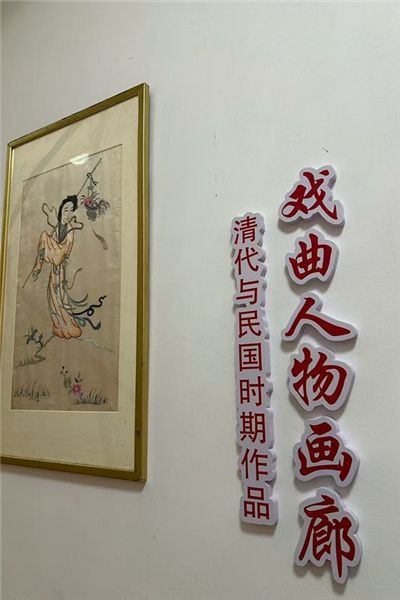 戏曲人物画廊
清代与民国时期作品